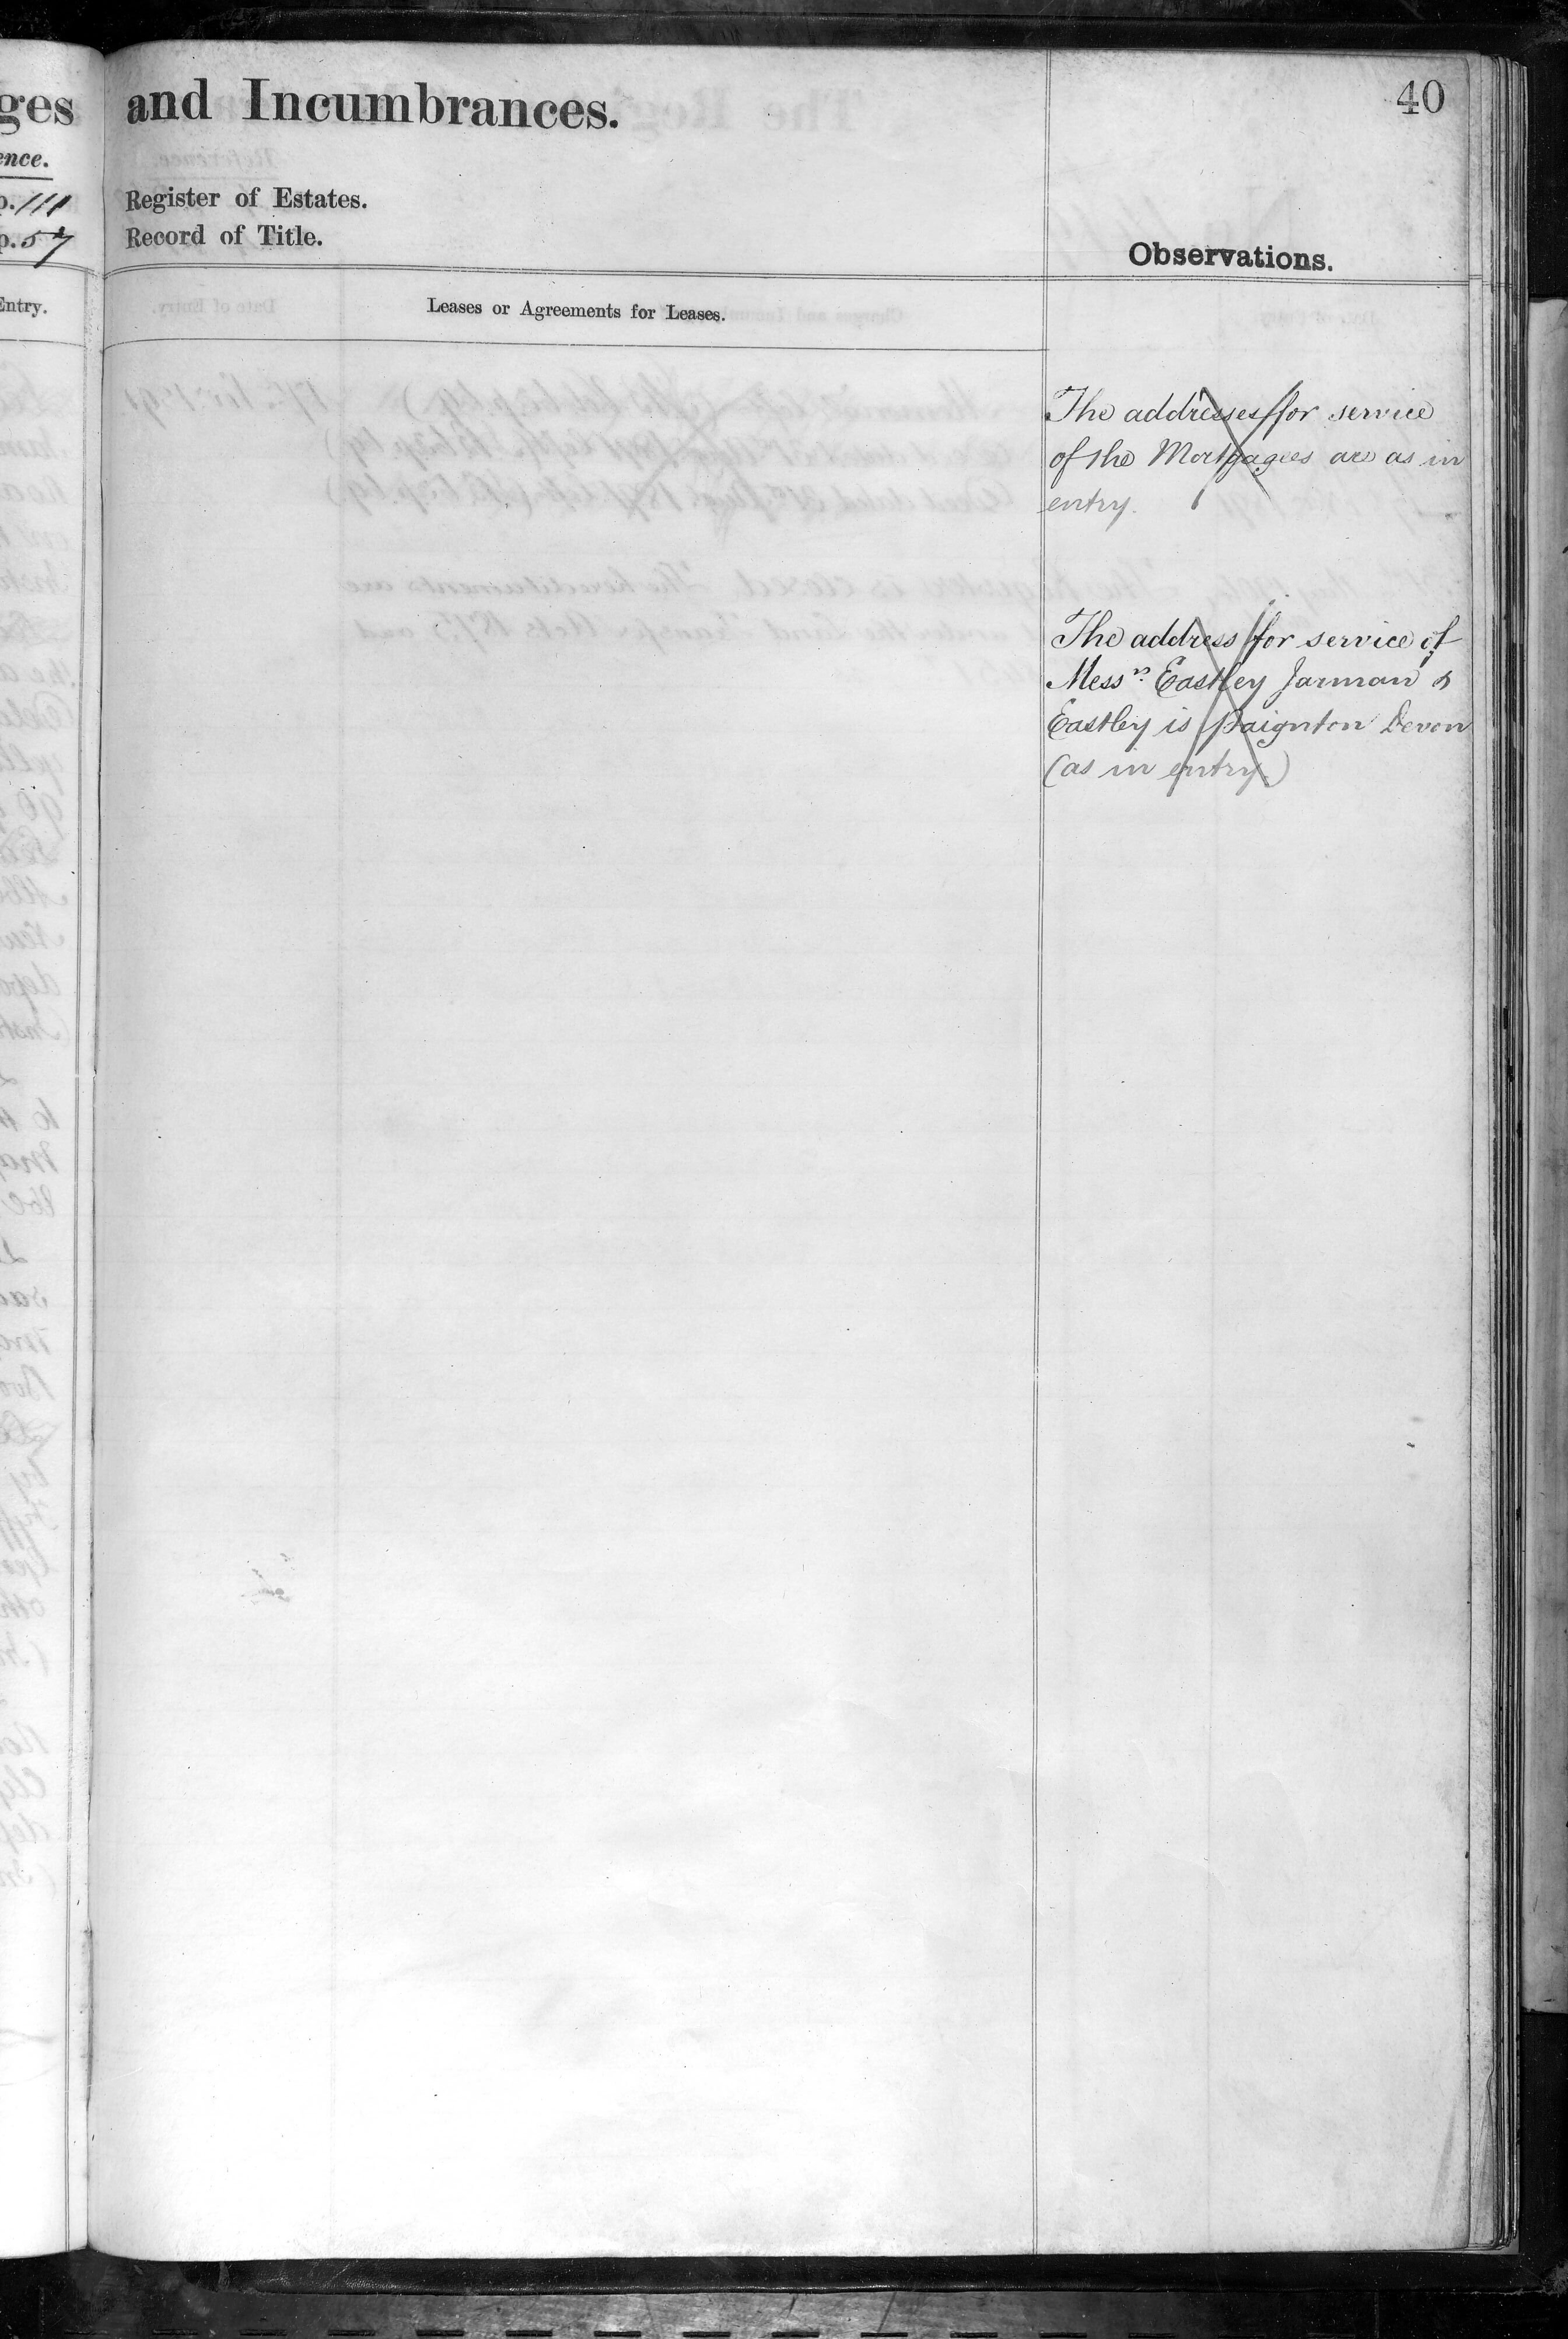 ges and Incumbrances.
40
ence.
p. 111 Register of Estates.
p. 57 Record of Title.
Observations.
Entry.
Leases or Agreements for Leases.
The addresses for service
of the Mortgagees are as in
entry.
The address for service of
Messrs. Eastley Jarman &
Eastley is Paignton Devon
(as in entry.)